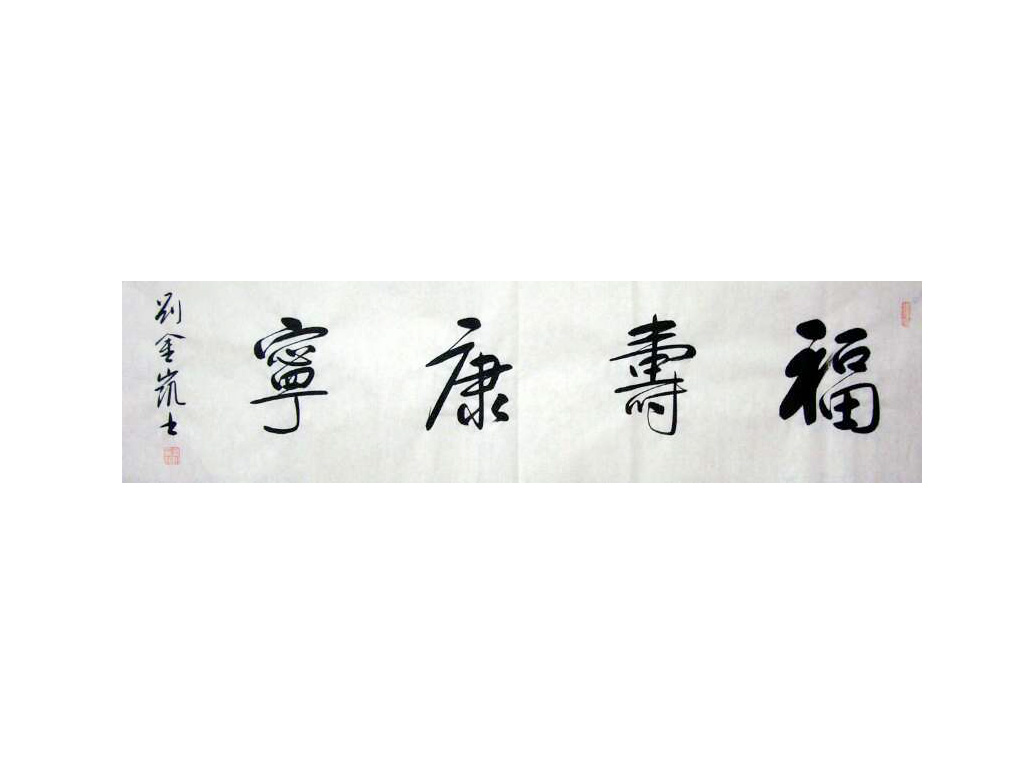 福壽康寧
劉金凱书